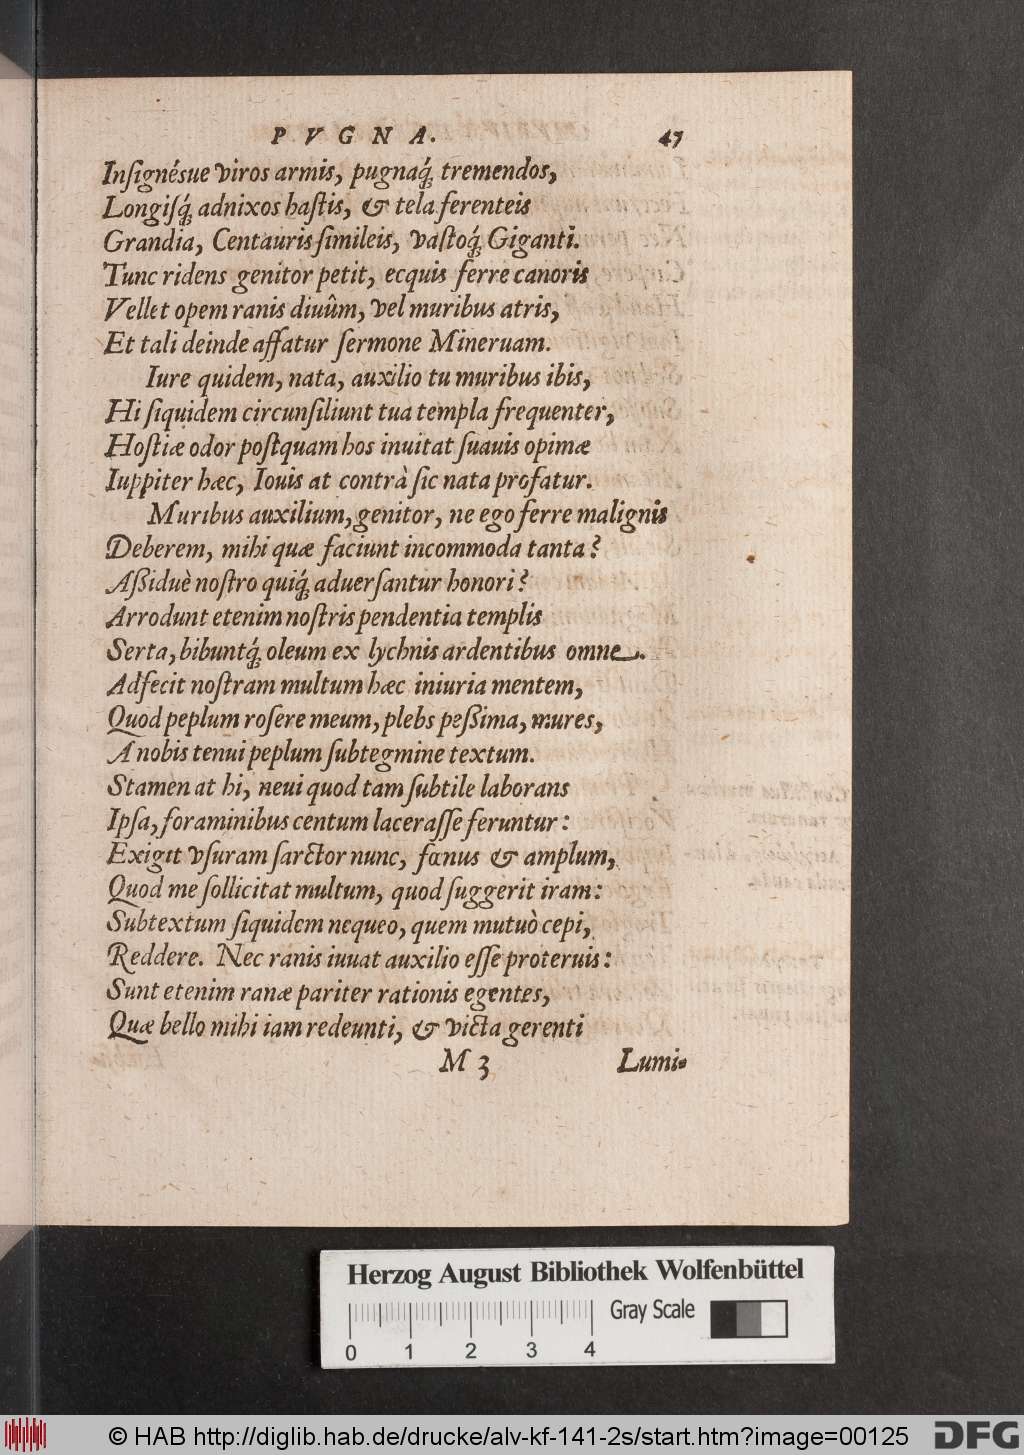 PVGNA. 47
Inſignésue viros armis, pugnaq́; tremendos,
Longiſq́; adnixos haſtis, & tela ferenteis
Grandia, Centauris ſimileis, vaſtoq́; Giganti.
Tunc ridens genitor petit, ecquis ferre canoris
Vellet opem ranis diuûm, vel muribus atris,
Et tali deinde affatur ſermone Mineruam.
Iure quidem, nata, auxilio tu muribus ibis,
Hi ſiquidem circunſiliunt tua templa frequenter,
Hoſtiæ odor poſtquam hos inuitat ſuauis opimæ
Iuppiter hæc, Iouis at contrà ſic nata profatur.
Muribus auxilium, genitor, ne ego ferre malignis
Deberem, mihi quæ faciunt incommoda tanta?
Aßiduè noſtro quiq́; aduerſantur honori?
Arrodunt etenim noſtris pendentia templis
Serta, bibuntq́; oleum ex lychnis ardentibus omne.
Adfecit noſtram multum hæc iniuria mentem,
Quod peplum roſere meum, plebs peßima, mures,
A nobis tenui peplum ſubtegmine textum.
Stamen at hi, neui quod tam ſubtile laborans
Ipſa, foraminibus centum laceraſſe feruntur:
Exigit vſuram ſarctor nunc, fœnus & amplum,
Quod me ſollicitat multum, quod ſuggerit iram:
Subtextum ſiquidem nequeo, quem mutuò cepi,
Reddere. Nec ranis iuuat auxilio eſſe proteruis:
Sunt etenim ranæ pariter rationis egentes,
Quæ bello mihi iam redeunti, & victa gerenti
M 3 Lumi-
Herzog August Bibliothek Wolfenbüttel
Gray Scale
0 1 2 3 4
© HAB http://diglib.hab.de/drucke/alv-kf-141-2s/start.htm?image=00125
DFG